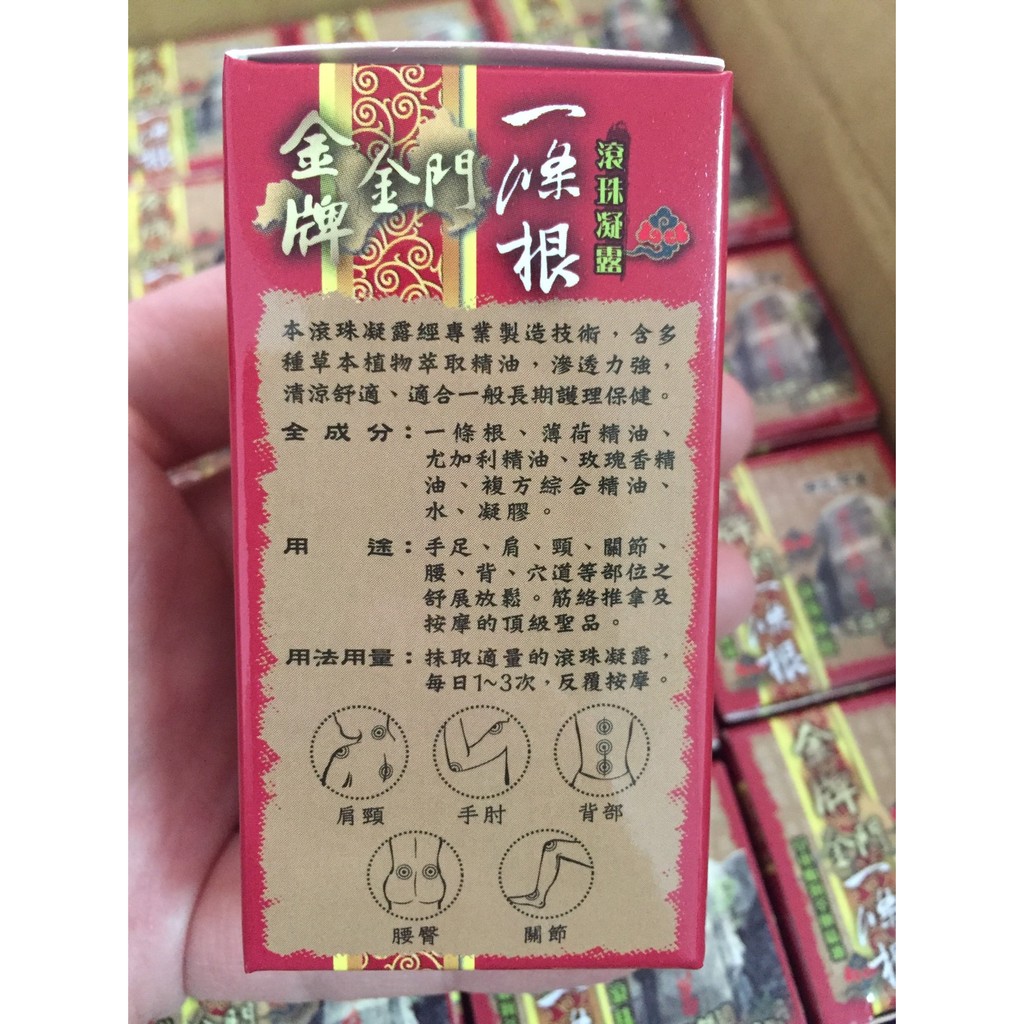 金牌
金門
一條根
滾珠凝露
本滾珠凝露經專業製造技術，含多
種草本植物萃取精油，滲透力強，
清涼舒適、適合一般長期護理保健。
全成分：一條根、薄荷精油、
尤加利精油、玫瑰香精
油、複方綜合精油、
水、凝膠。
用途：手足、肩、頸、關節、
腰、背、穴道等部位之
舒展放鬆。筋絡推拿及
按摩的頂級聖品。
用法用量：抹取適量的滾珠凝露，
每日1~3次，反覆按摩。
肩頸
手肘
背部
腰臀
關節
金牌
金門
一條根